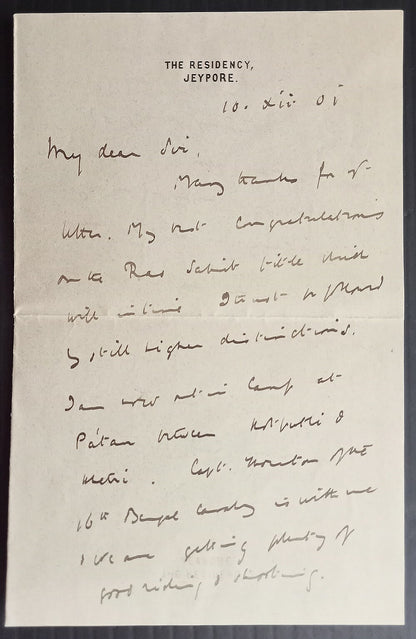 THE RESIDENCY,
JEYPORE.
10. xii 01
My dear Sir,
Many thanks for yr
letter. My best Congratulations
on the Rao Sahib title which
will in time I trust be followed
by still higher distinctions.
I am now out in Camp at
Pátan between Kotputli &
. Capt. of the
16th Bengal Cavalry is with me
& we are getting plenty of
good riding & shooting.